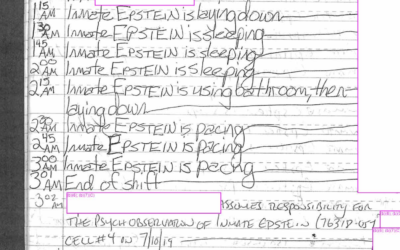 1 15 AM Inmate EPSTEIN is laying down
1 30 AM Inmate EPSTEIN is sleeping
1 45 AM Inmate EPSTEIN is sleeping
2 00 AM Inmate EPSTEIN is sleeping
2 15 AM Inmate EPSTEIN is using bathroom, then
laying down
2 30 AM Inmate EPSTEIN is pacing
2 45 AM Inmate EPSTEIN is pacing
3 00 AM Inmate EPSTEIN is pacing
3 01 AM End of shift
3 02 AM ASSUMES RESPONSIBILITY FOR
THE PSYCH OBSERVATION OF INMATE EPSTEIN (76318-054
CELL #4 ON 7/10/19